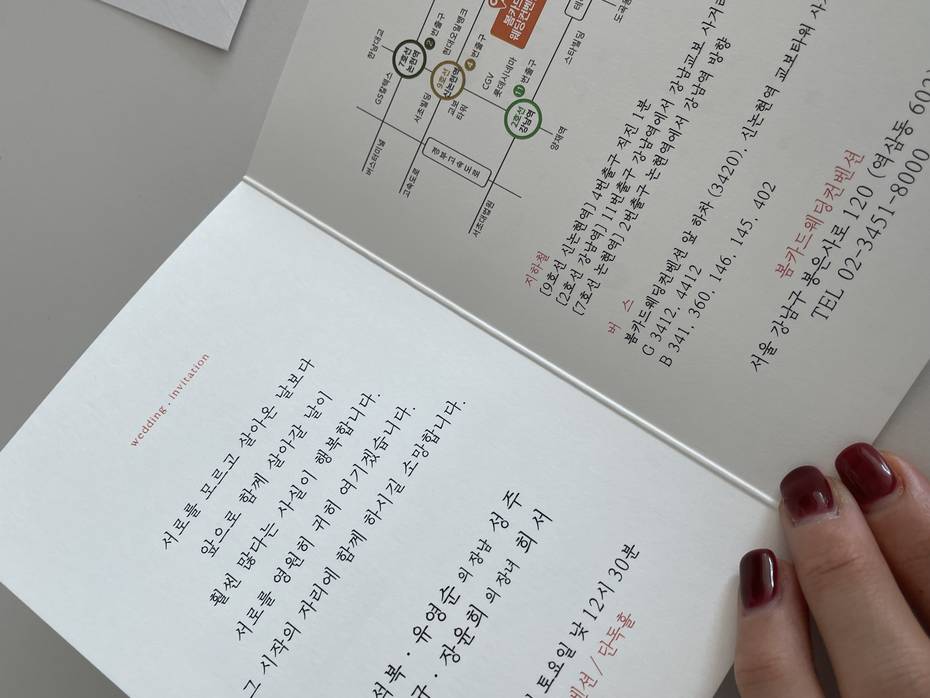 wedding . invitation
서로를 모르고 살아온 날보다
앞으로 함께 살아갈 날이
훨씬 많다는 사실이 행복합니다.
서로를 영원히 귀히 여기겠습니다.
그 시작의 자리에 함께 하시길 소망합니다.
석복 · 유영순 의 장남 성 주
구 · 장윤희 의 장녀 희 서
토요일 낮 12시 30분
벤션 / 단독홀
한남대교
7호선
논현역
2 번출구
현대오일뱅크
9호선
신논현역
4 번출구
봄카드
웨딩컨벤
GS칼텍스
서초빌딩
교보
타워
CGV
롯데시네마
11 번출구
2호선
강남역
스타빌딩
버스터미널
고속도로
경부고속도로
서초대법원
양재역
지하철
[9호선 신논현역] 4번출구 직진 1분
[2호선 강남역] 11번출구 강남역에서 강남교보 사거리
[7호선 논현역] 2번출구 논현역에서 강남역 방향
버 스
봄카드웨딩컨벤션 앞 하차 (3420), 신논현역 교보타워 사
G 3412. 4412
B 341. 360. 146. 145. 402
봄카드웨딩컨벤션
서울 강남구 봉은사로 120 (역삼동 602
TEL 02-3451-8000